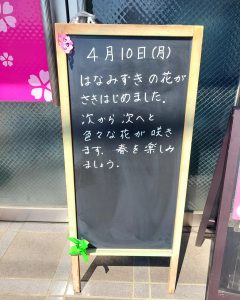 4月10日(月)
はなみずきの花が
さきはじめました。
次から次へと
色々な花が咲き
ます、春を楽しみ
ましょう。